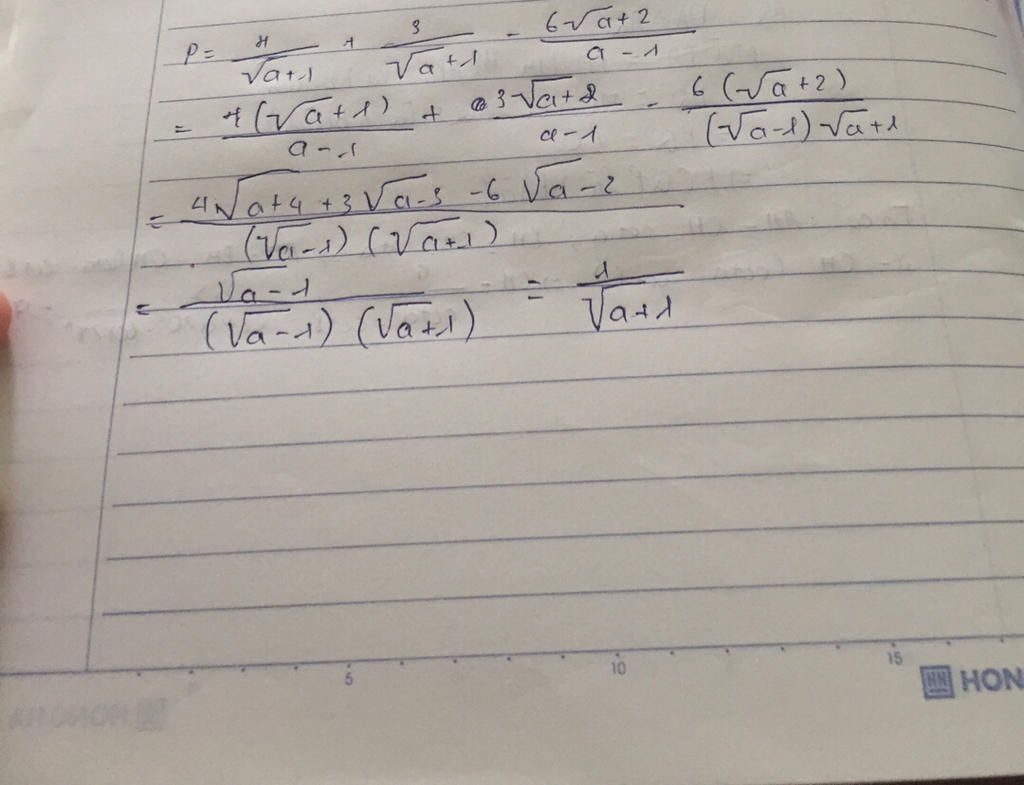 P = 4/√a+1 + 3/√a+1 - 6√a+2/a-1
= 4(√a+1)/a-1 + 3√a+2/a-1 - 6(√a+2)/(√a-1)√a+1
= 4√a+4+3√a-3-6√a-2/(√a-1)(√a+1)
= √a-1/(√a-1)(√a+1) = 1/√a+1
5 10 15
HON